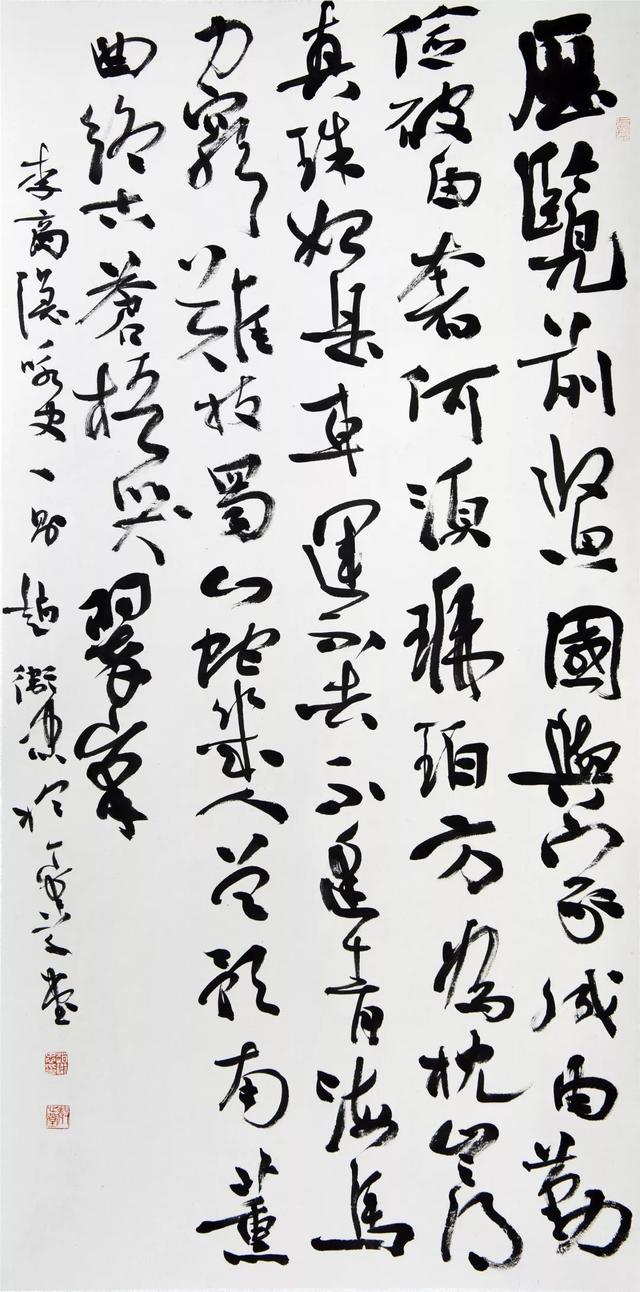 歷覽前賢國與家成由勤
儉破由奢何須琥珀方為枕豈得
真珠始是車運不去不逢青海馬
力窮難拔蜀山蛇幾人曾預南薰
曲終古蒼梧哭翠華
李商隱咏史一則趙衛於堂